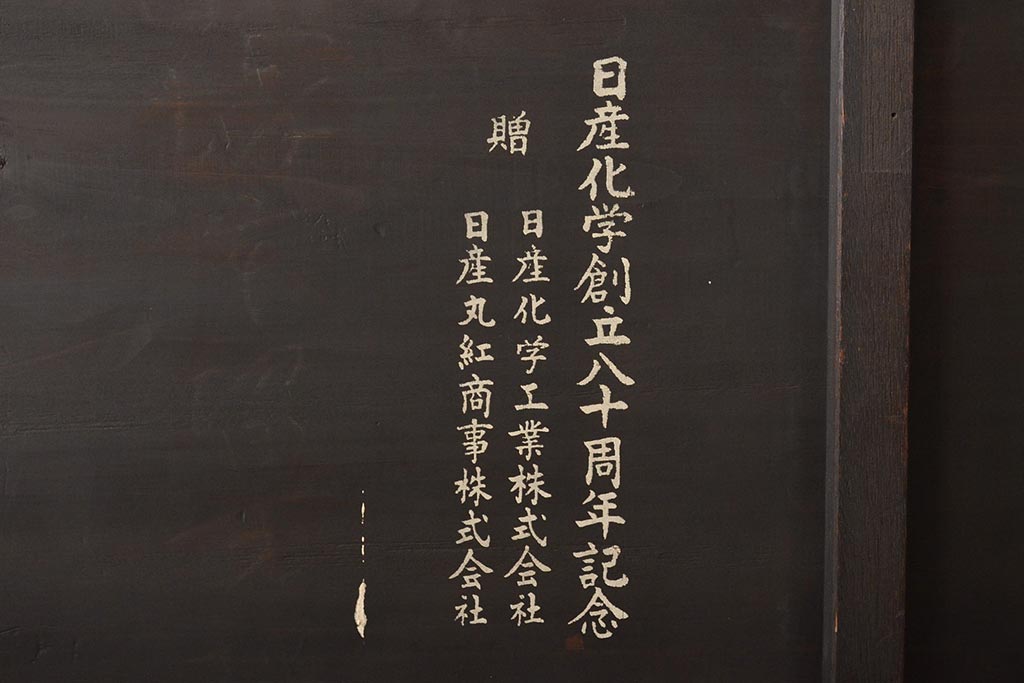 日産化学創立八十周年記念
贈
日産化学工業株式会社
日産丸紅商事株式会社